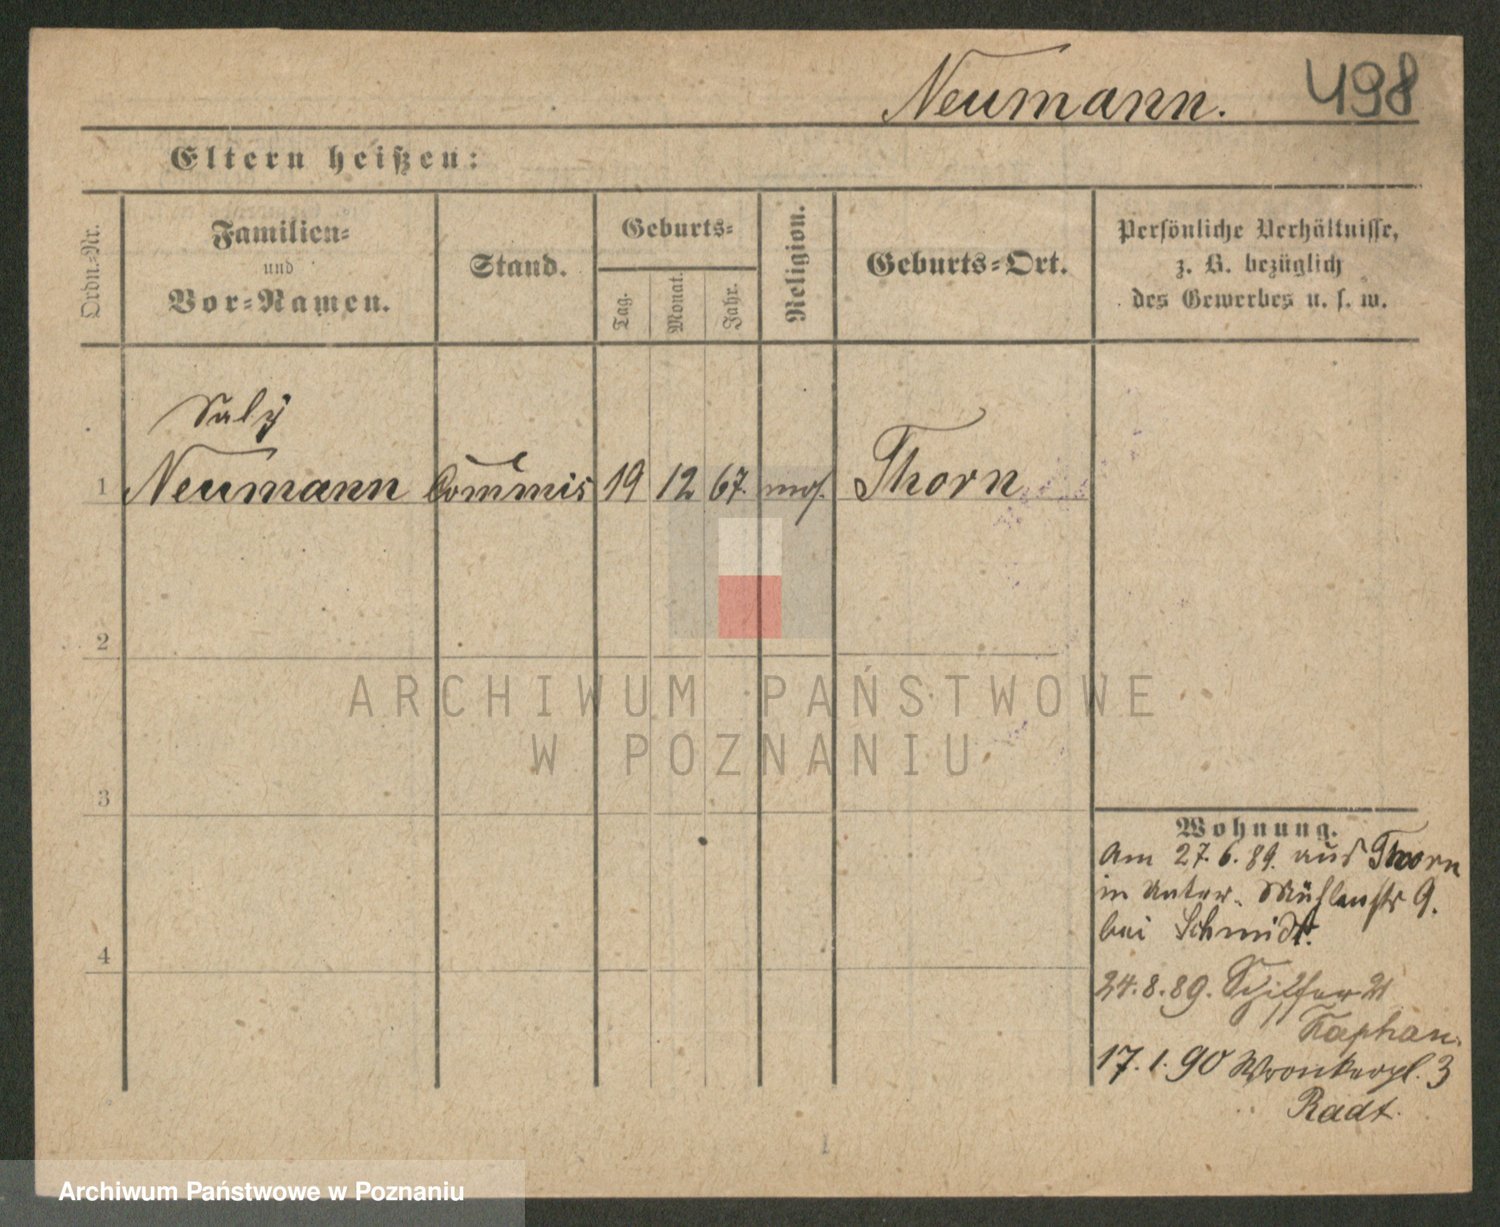 Neumann. 498
Eltern heißen:
Ordn.-Nr.
Familien-
und
Vor-Namen.
Stand.
Geburts-
Tag.
Monat.
Jahr.
Religion.
Geburts-Ort.
Persönliche Verhältnisse,
z. B. bezüglich
des Gewerbes u. s. w.
Saly
1 Neumann Commis 19 12 67. mos. Thorn
2
ARCHIWUM PAŃSTWOWE
W POZNANIU
3
4
Wohnung.
Am 27.6.89. aus Thorn
in Unter- Mühlenstr 9.
bei Schmidt.
24.8.89. Schifferstr 21
Kaphan.
17.1.90 Wronkerpl. 3
Radt.
1
Archiwum Państwowe w Poznaniu